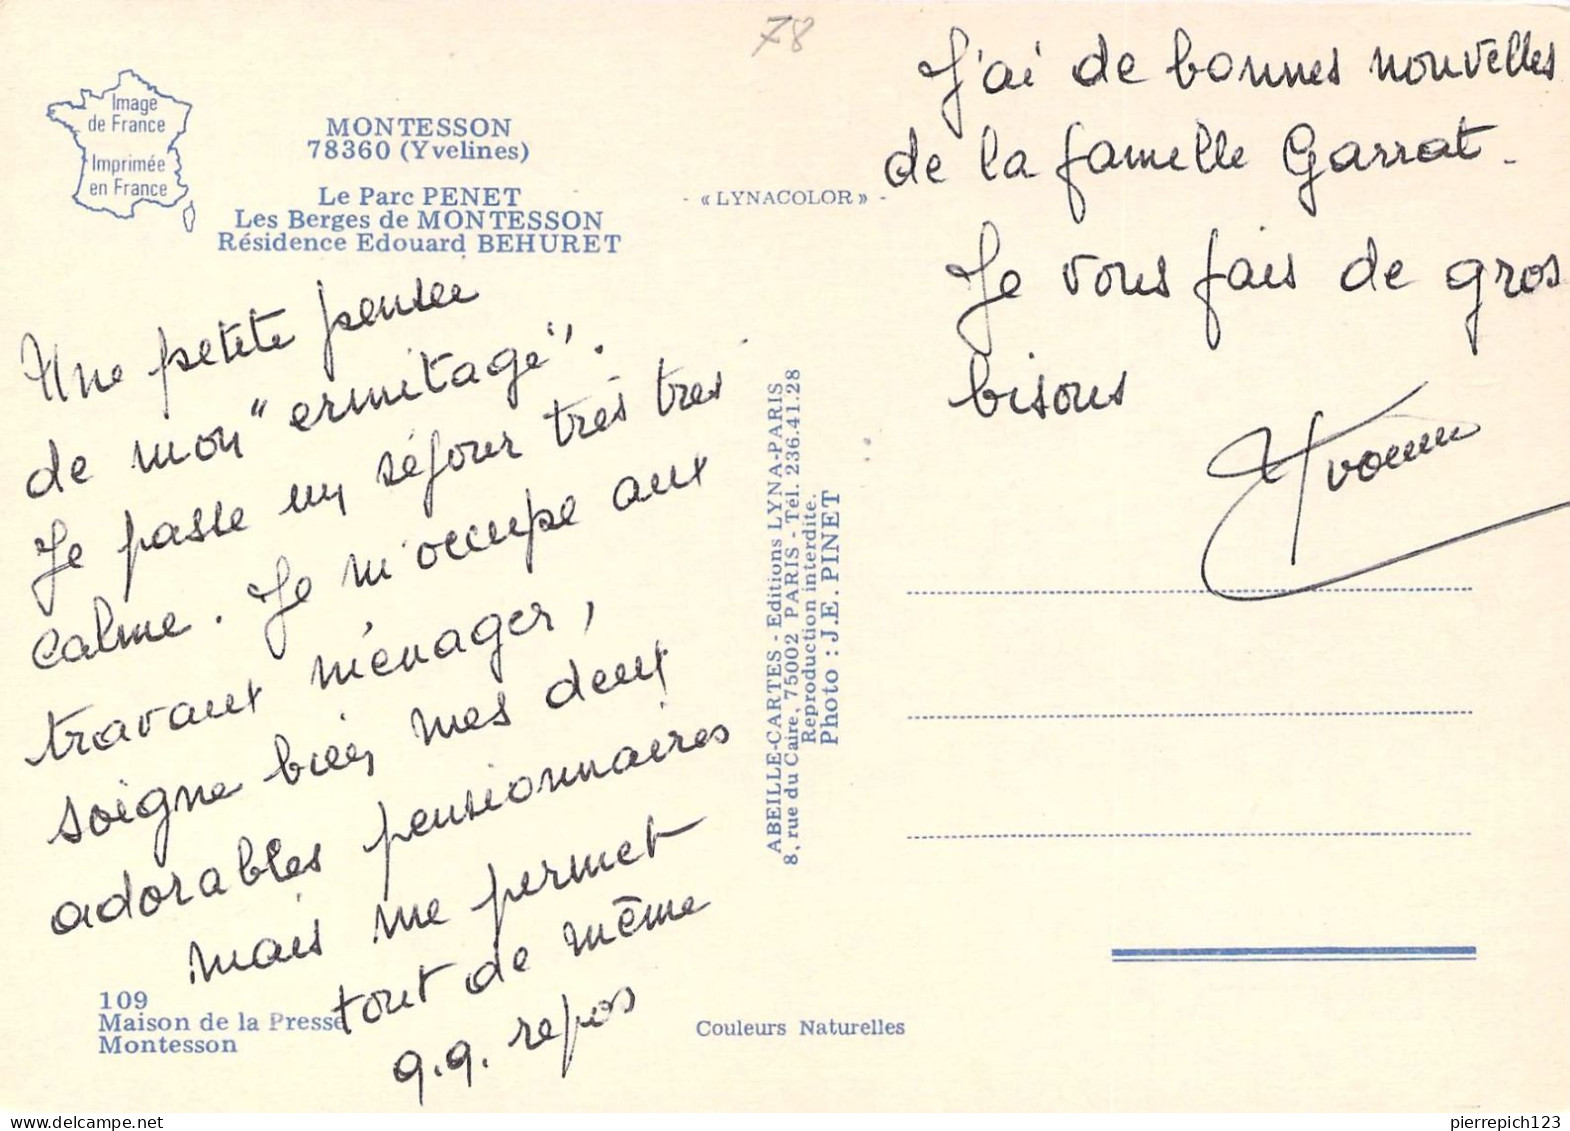 78
Image
de France
Imprimée
en France
MONTESSON
78360 (Yvelines)
Le Parc PENET
Les Berges de MONTESSON
Résidence Edouard BEHURET
- « LYNACOLOR » -
Une petite pensée
de mon "ermitage".
Je passe un séjour très très
calme. Je m'occupe aux
travaux ménager,
soigne bien mes deux
adorables pensionnaires
mais me permet
tout de même
q.q. repos
109
Maison de la Presse
Montesson
Couleurs Naturelles
ABEILLE-CARTES - Editions LYNA-PARIS
8, rue du Caire, 75002 PARIS - Tél. 236.41.28
Reproduction interdite.
Photo : J.E. PINET
J'ai de bonnes nouvelles
de la famille Garrat.
Je vous fais de gros
bisous
Yvonne
pierrepich123